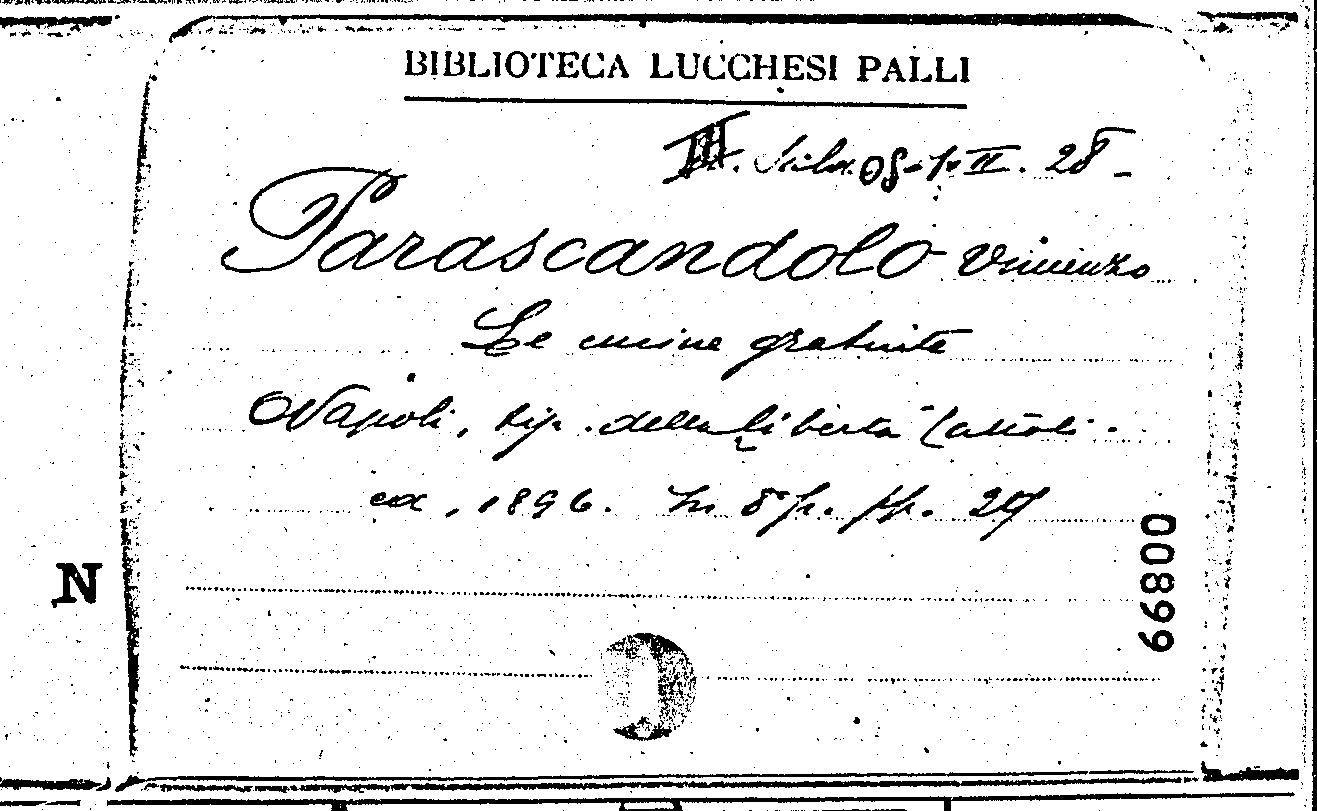 BIBLIOTECA LUCCHESI PALLI
III. Scila 08-1-II. 28 -
Parascandolo Vincenzo
Le cucine gratuite
Napoli, tip. della "Libertà Cattoli-
ca, 1896. In 8° p. pp. 24
N
00899